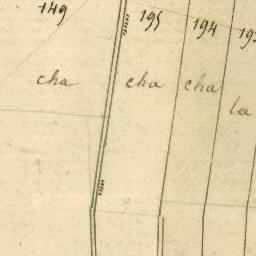 149 195 194
cha cha cha
la